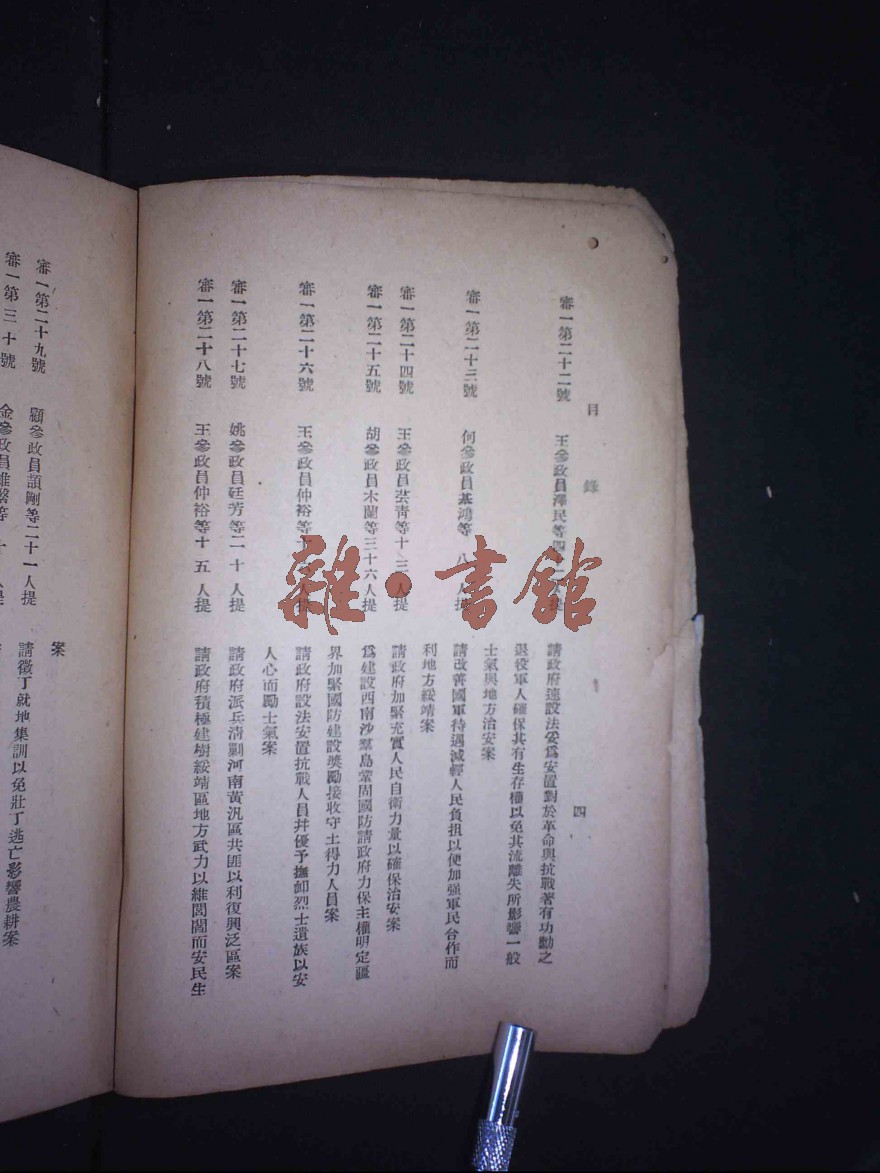 目錄
四
審一第二十二號 王參政員澤民等四 提 請政府速設法妥爲安置對於革命與抗戰著有功勳之
退役軍人確保其有生存權以免其流離失所影響一般
士氣與地方治安案
審一第二十三號 何參政員基鴻等 八 人提 請改善國軍待遇減輕人民負担以便加强軍民合作而
利地方綏靖案
審一第二十四號 王參政員芸青等十三人提 請政府加緊充實人民自衛力量以確保治安案
審一第二十五號 胡參政員木蘭等三十六人提 爲建設西南沙羣島鞏固國防請政府力保主權明定疆
界加緊國防建設獎勵接收守土得力人員案
審一第二十六號 王參政員仲裕等 人提 請政府設法安置抗戰人員幷優予撫卹烈士遺族以安
人心而勵士氣案
審一第二十七號 姚參政員廷芳等二十人提 請政府派兵清剿河南黃汎區共匪以利復興泛區案
審一第二十八號 王參政員仲裕等十五人提 請政府積極建樹綏靖區地方武力以維閭閻而安民生
案
審一第二十九號 顧參政員頡剛等二十一人提 請徵丁就地集訓以免壯丁逃亡影響農耕案
審一第三十號 金參政員維繫等 十 人提
雜·書館